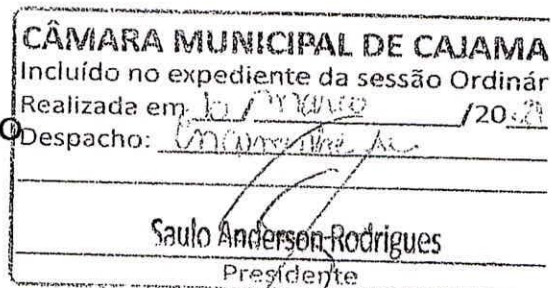 CÂMARA MUNICIPAL DE CAJAMA
Incluído no expediente da sessão Ordinár
Realizada em 10 / março /2021
O
Despacho: Encaminhe se
Saulo Anderson Rodrigues
Presidente